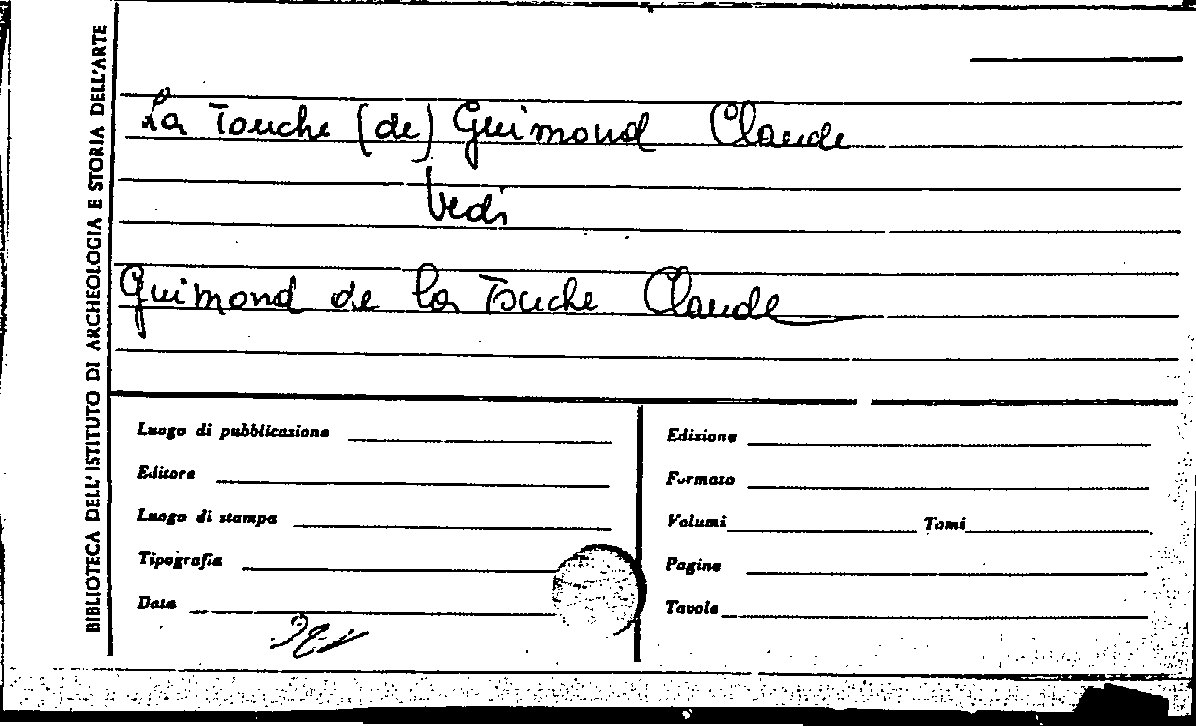 BIBLIOTECA DELL'ISTITUTO DI ARCHEOLOGIA E STORIA DELL'ARTE
La Touche (de) Guimond Claude
Vedi
Guimond de la Touche Claude
Luogo di pubblicazione
Editore
Luogo di stampa
Tipografia
Data
Edizione
Formato
Volumi Tomi
Pagine
Tavole